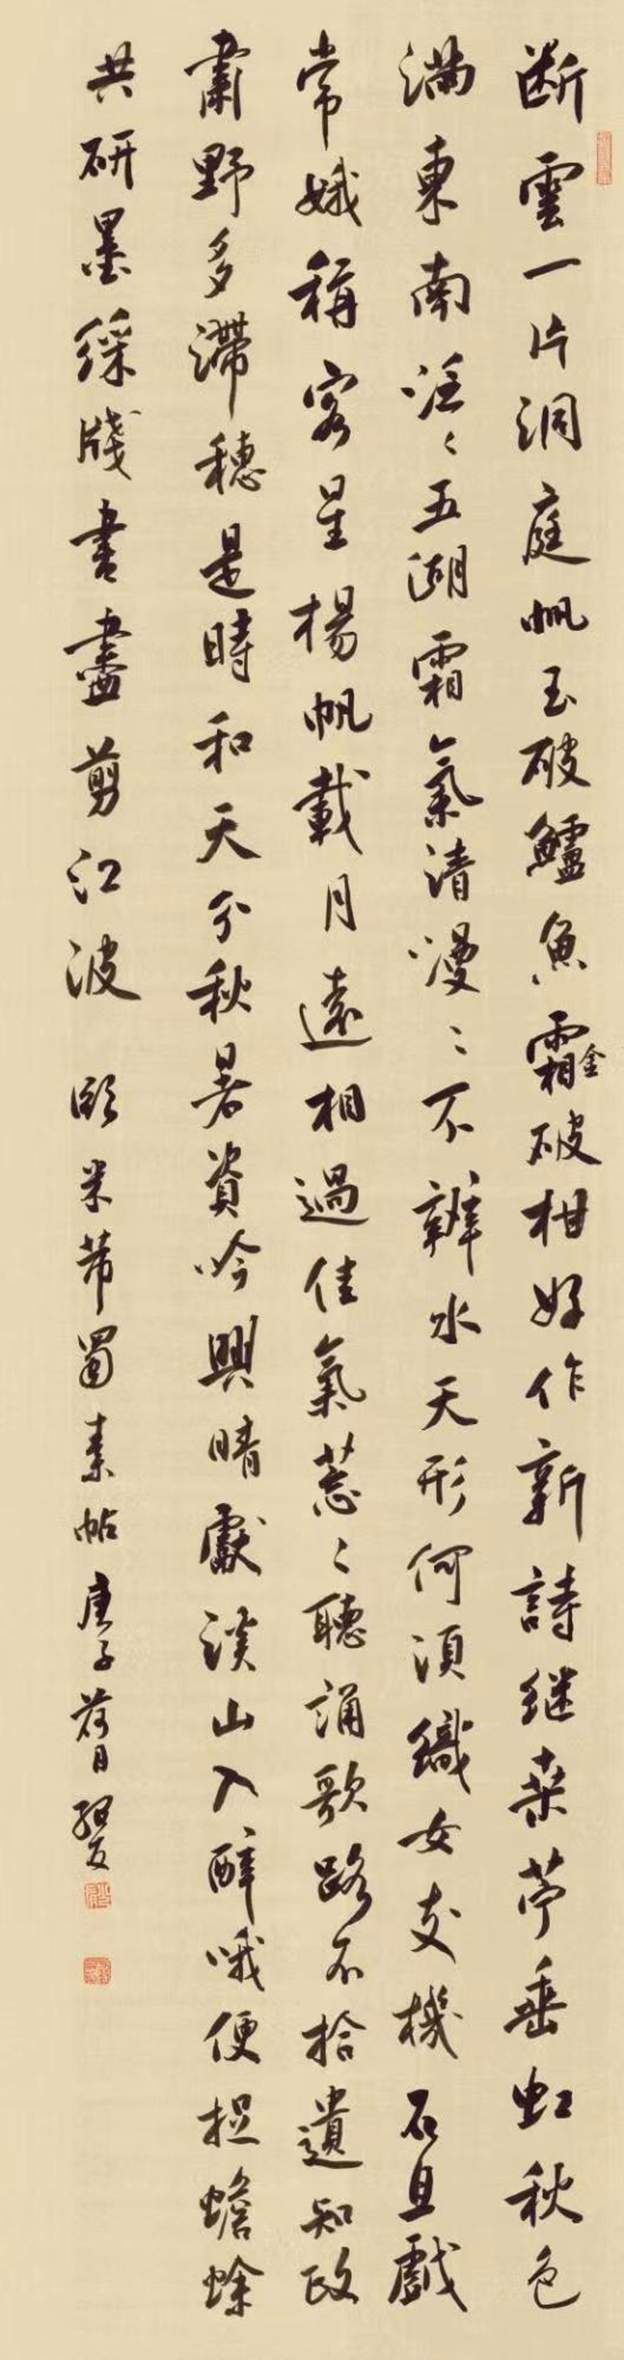 断雲一片洞庭帆玉破鱸魚霜金破柑好作新詩継桑苧垂虹秋色
満東南泛〻五湖霜氣清漫〻不辨水天形何須織女支機石且戯
常娥稱客星楊帆載月遠相過佳氣葱〻聽誦歌路不拾遺知政
肅野多滯穗是時和天分秋暑資吟興晴獻溪山入醉哦便捉蟾蜍
共研墨綵牋書盡剪江波 臨米芾蜀素帖庚子荷月